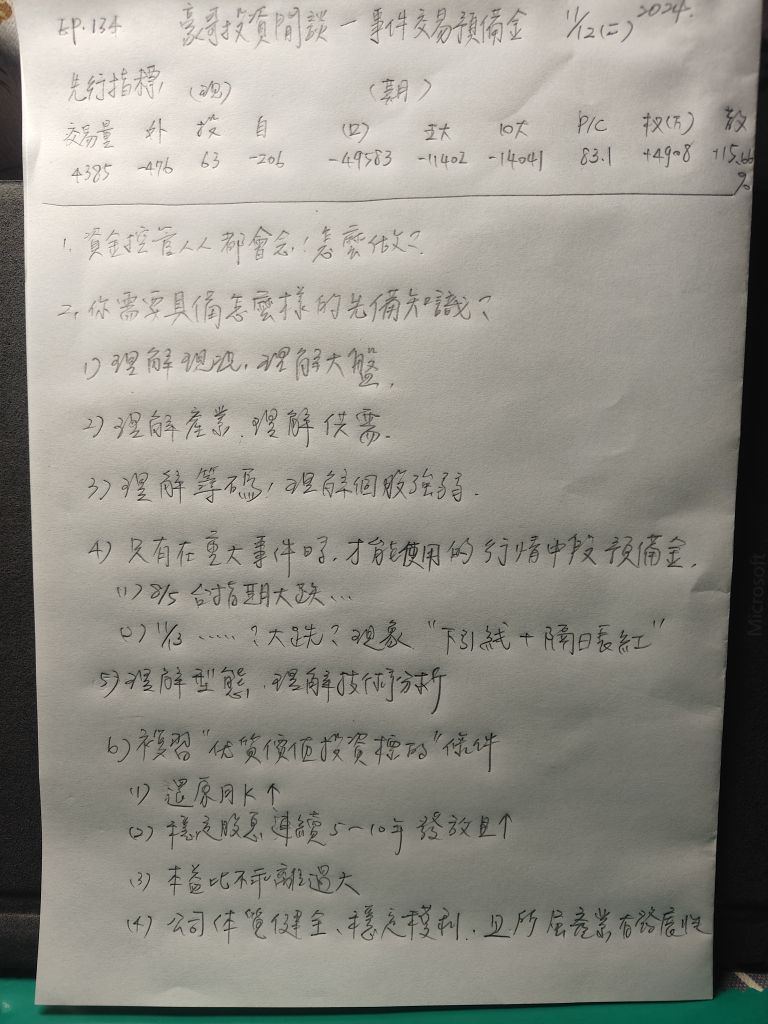 EP.134 豪哥投資閒談－事件交易預備金 11/12(二) 2024.
先行指標 (現) (期)
交易量 外 投 自 (口) 五大 10大 P/C 权(万) 散
4385 -476 63 -206 -49583 -11402 -14041 83.1 +4908 +15.66%
1. 資金控管人人都會念！怎麼做？
2. 你需要具備怎麼樣的先備知識？
1) 理解現況，理解大盤.
2) 理解產業，理解供需.
3) 理解筹碼，理解個股強弱.
4) 只有在重大事件時，才能使用的行情中段預備金.
(1) 8/5 台指期大跌...
(2) 11/13 ......？大跌？現象 "下引紙+隔日長紅"
5) 理解型態，理解技術分析
6) 複習"优質價值投資標的"條件
(1) 還原月K↑
(2) 穩定股息連續5~10年發放且↑
(3) 本益比不乖離過大
(4) 公司体質健全、穩定獲利，且所屬產業有發展性
Microsoft